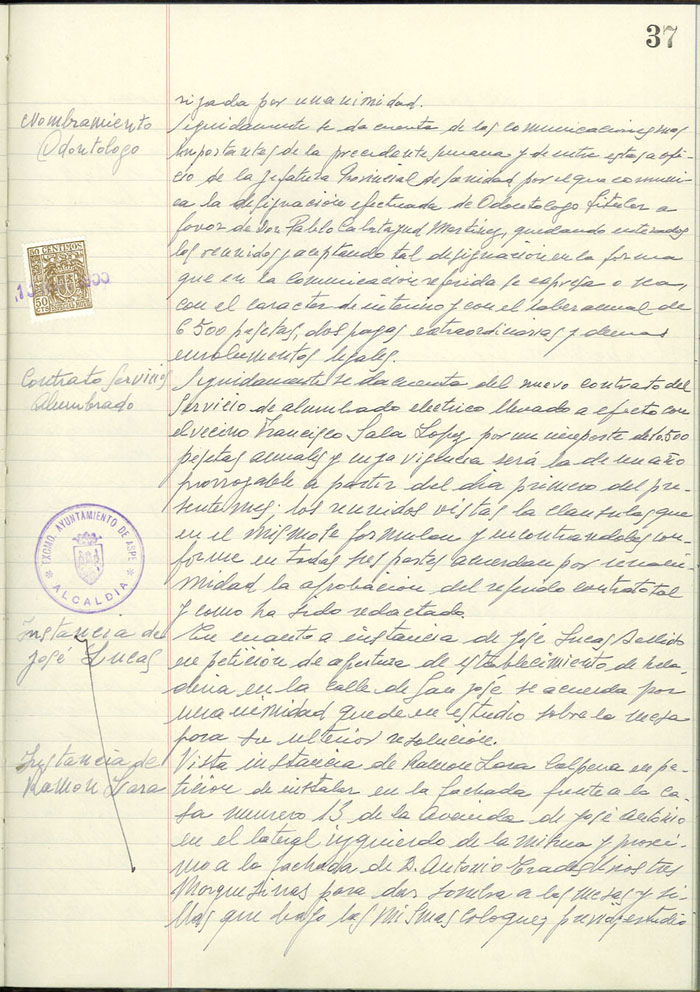 37
rizada por unanimidad.
Nombramiento
Odontologo
Seguidamente se da cuenta de las comunicaciones mas
importantes de la precedente semana y de entre estas a ofi-
cio de la Jefatura Provincial de Sanidad por el que comuni-
ca la designación efectuada de Odontologo titular a
favor de Don Pablo Calatayud Martinez, quedando enterados
los reunidos y aceptando tal designación en la forma
que en la comunicación referida se expresa o sea,
con el caracter de interino y con el haber anual de
6.500 pesetas, dos pagas extraordinarias y demas
emolumentos legales.
50 CENTIMOS
50
CTS
Contrato Servicios
Alumbrado
Seguidamente se da cuenta del nuevo contrato del
Servicio de alumbrado electrico llevado a efecto con
el vecino Francisco Sala Lopez por un importe de 10.500
pesetas anuales y cuya vigencia será la de un año
prorrogable a partir del dia primero del pre-
sente mes: los reunidos vistas la clausulas que
en el mismo se formulan y encontrandoles con-
forme en todas sus partes acuerdan por unani-
midad la aprobacion del referido contrato tal
y como ha sido redactado.
EXCMO. AYUNTAMIENTO DE ASPE
ALCALDIA
Instancia de
José Lucas
En cuanto a instancia de José Lucas
en petición de apertura de establecimiento de hela-
deria en la calle de San José se acuerda por
unanimidad quede en estudio sobre la mesa
para su ulterior resolución.
Instancia de
Ramon Lara
Vista instancia de Ramon Lara Calpena en pe-
tición de instalar en la fachada frente a la ca-
sa numero 13 de la Avenida de José Antonio
en el lateral izquierdo de la misma y proxi-
mo a la fachada de D. Antonio tres
Marquesinas para dar sombra a las mesas y si-
llas que bajo las mismas coloque, previo estudio